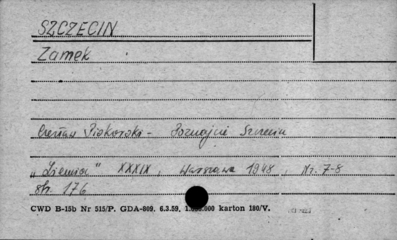 SZCZECIN
Zamek
Czesław Piskorski - Poznajcie Szczecin
"Ziemia" XXXIX, Warszawa 1948, Nr. 7-8
str. 176
CWD B-15b Nr 515/P. GDA-809. 6.3.59. 1.000.000 karton 180/V.